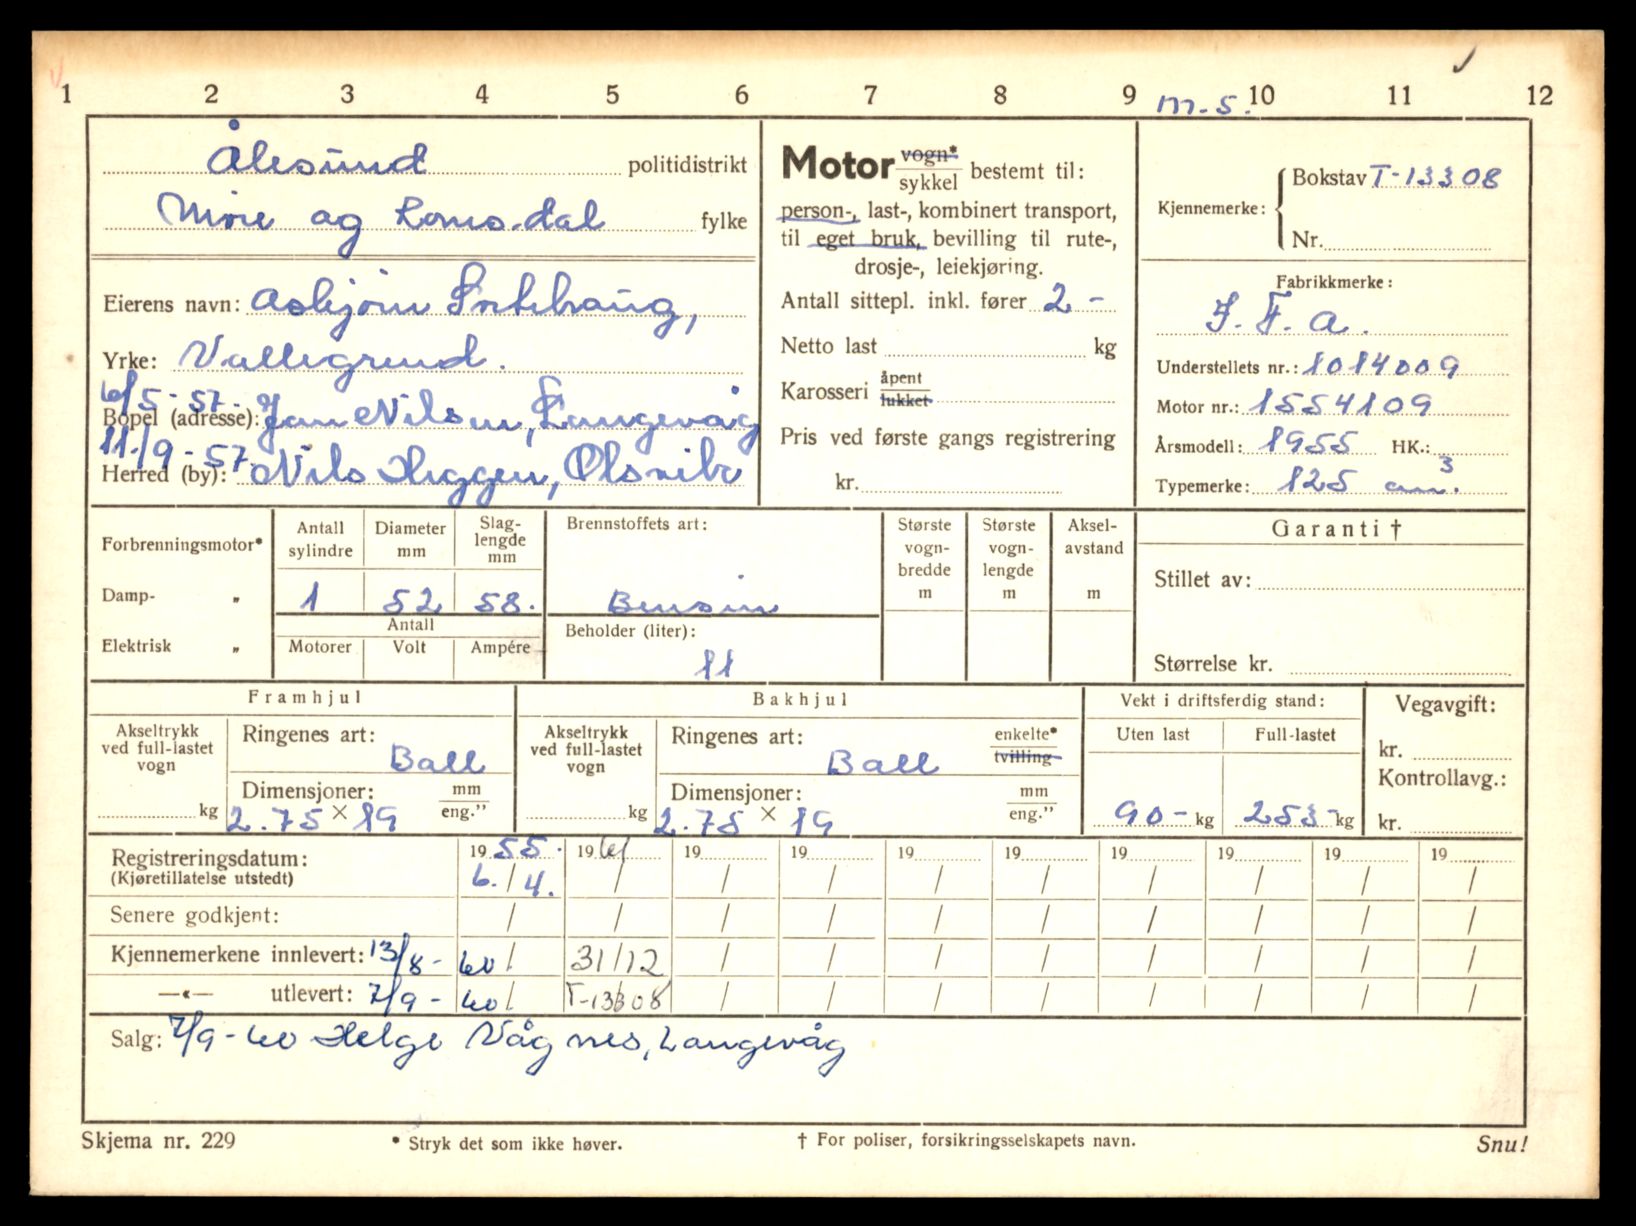 1 2 3 4 5 6 7 8 9 m-s. 10 11 12
Ålesund politidistrikt
Møre og Romsdal fylke
Eierens navn: Asbjørn
Yrke: Valle
6/5-57.
Bopel (adresse): Jan Nilsen, Langevåg
11./9-57
Herred (by): Nils Heggen, Olsvik
Motor vogn*
sykkel bestemt til:
person-, last-, kombinert transport,
til eget bruk, bevilling til rute-,
drosje-, leiekjøring.
Antall sittepl. inkl. fører 2 -
Netto last kg
Karosseri åpent
lukket
Pris ved første gangs registrering
kr.
Kjennemerke: Bokstav T-13308
Nr.
Fabrikkmerke:
I. F. A.
Understellets nr.: 1014009
Motor nr.: 1554109
Årsmodell: 1955 HK.:
Typemerke: 125 cm.3
Forbrenningsmotor*
Damp- "
Elektrisk "
Antall sylindre
Diameter mm
Slag-
lengde
mm
1 52 58.
Antall
Motorer Volt Ampére
Brennstoffets art:
Bensin
Beholder (liter):
11
Største
vogn-
bredde
m
Største
vogn-
lengde
m
Aksel-
avstand
m
Garanti †
Stillet av:
Størrelse kr.
Framhjul
Akseltrykk
ved full-lastet
vogn
kg
Ringenes art:
Ball
Dimensjoner: mm
eng."
2.75 × 19
Bakhjul
Akseltrykk
ved full-lastet
vogn
kg
Ringenes art: enkelte*
tvilling
Ball
Dimensjoner: mm
eng."
2.75 × 19
Vekt i driftsferdig stand:
Uten last Full-lastet
90 - kg 253 - kg
Vegavgift:
kr.
Kontrollavg.:
kr.
Registreringsdatum: 19 55. 19 61 19 19 19 19 19 19 19 19
(Kjøretillatelse utstedt) 6. / 4. / / / / / / / / /
Senere godkjent: / / / / / / / / / /
Kjennemerkene innlevert: 13/8 - 60 / 31/12 / / / / / / / /
—«— utlevert: 7/9 - 60 / T-13308 / / / / / / / /
Salg: 7/9-60 Helge Vågnes, Langevåg
Skjema nr. 229 * Stryk det som ikke høver. † For poliser, forsikringsselskapets navn. Snu!